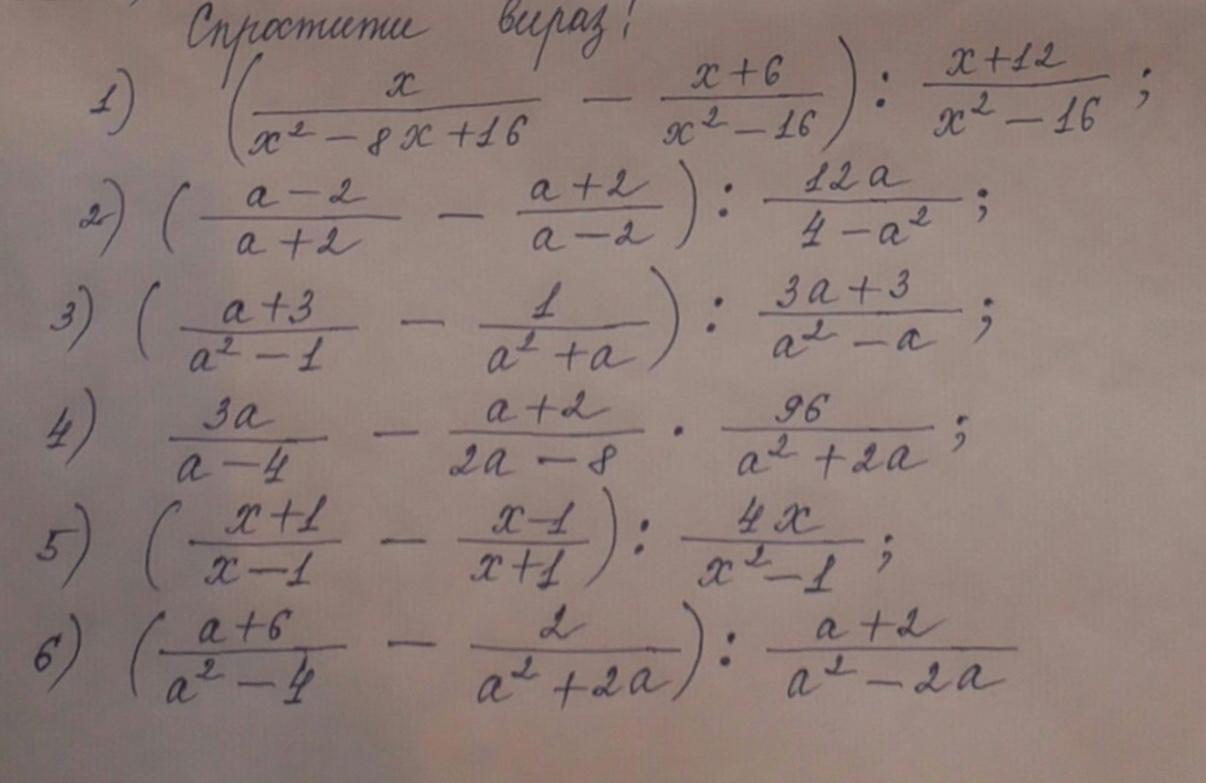 Спростити вираз!
1) (x/(x² - 8x + 16) - (x + 6)/(x² - 16)) : (x + 12)/(x² - 16) ;
2) ((a - 2)/(a + 2) - (a + 2)/(a - 2)) : 12a/(4 - a²) ;
3) ((a + 3)/(a² - 1) - 1/(a² + a)) : (3a + 3)/(a² - a) ;
4) 3a/(a - 4) - (a + 2)/(2a - 8) · 96/(a² + 2a) ;
5) ((x + 1)/(x - 1) - (x - 1)/(x + 1)) : 4x/(x² - 1) ;
6) ((a + 6)/(a² - 4) - 2/(a² + 2a)) : (a + 2)/(a² - 2a)